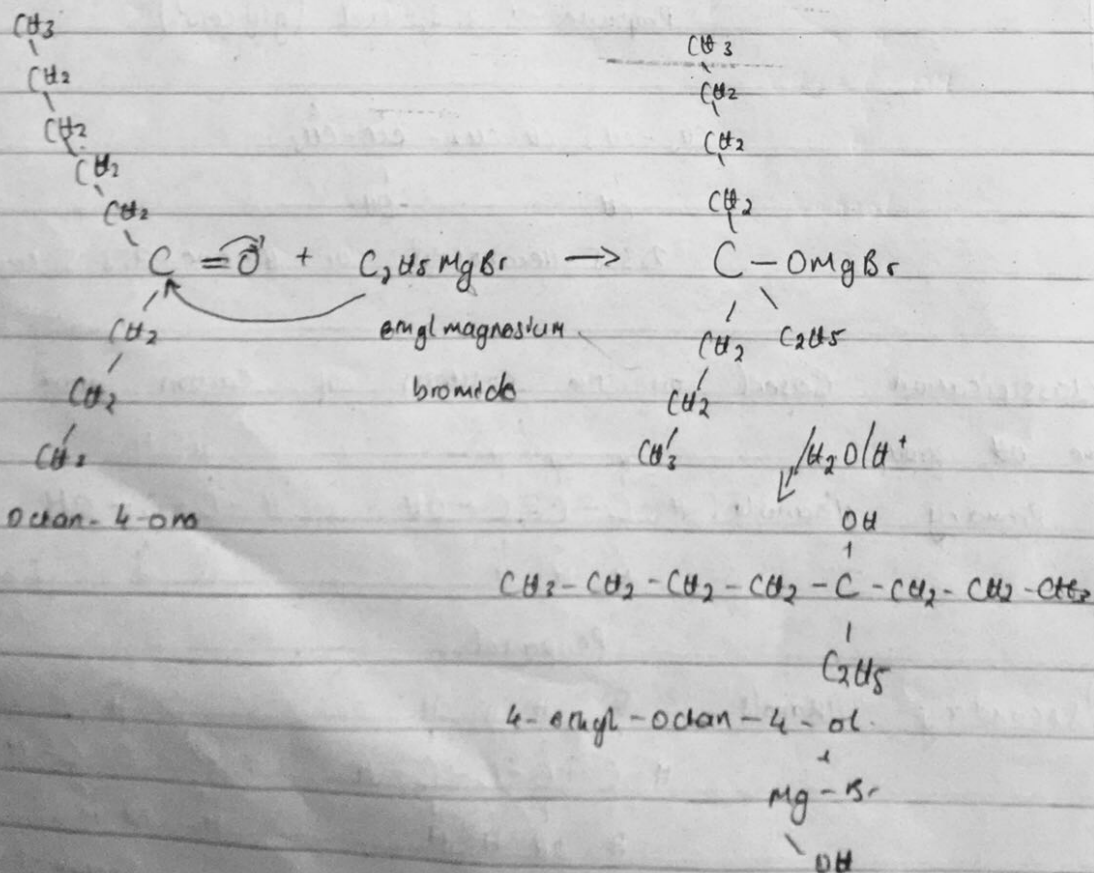 CH3
CH2
CH2
CH2
CH2
C = O + C2H5MgBr → C - OMgBr
CH2
CH2
CH3
ethyl magnesium
bromide
Octan-4-one
CH3
CH2
CH2
CH2
CH2
C2H5
CH2
CH3
H2O/H+
OH
CH3-CH2-CH2-CH2-C-CH2-CH2-CH3
C2H5
4-ethyl-octan-4-ol
+
Mg-Br
OH